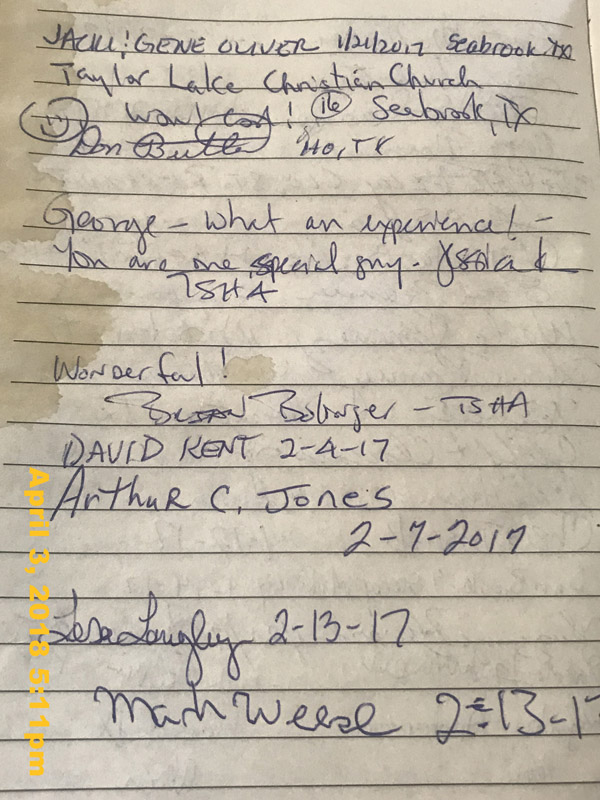 JACKI & GENE OLIVER 1/21/2017 Seabrook TX
Taylor Lake Christian Church
Won't! 16 Seabrook, TX
Don Ho, TX
George - What an experience! -
You are one special guy.
TSHA
Wonderful!
- TSHA
DAVID KENT 2-4-17
Arthur C. Jones
2-7-2017
Langley 2-13-17
Mark Weese 2-13-17
April 3, 2018 5:11pm